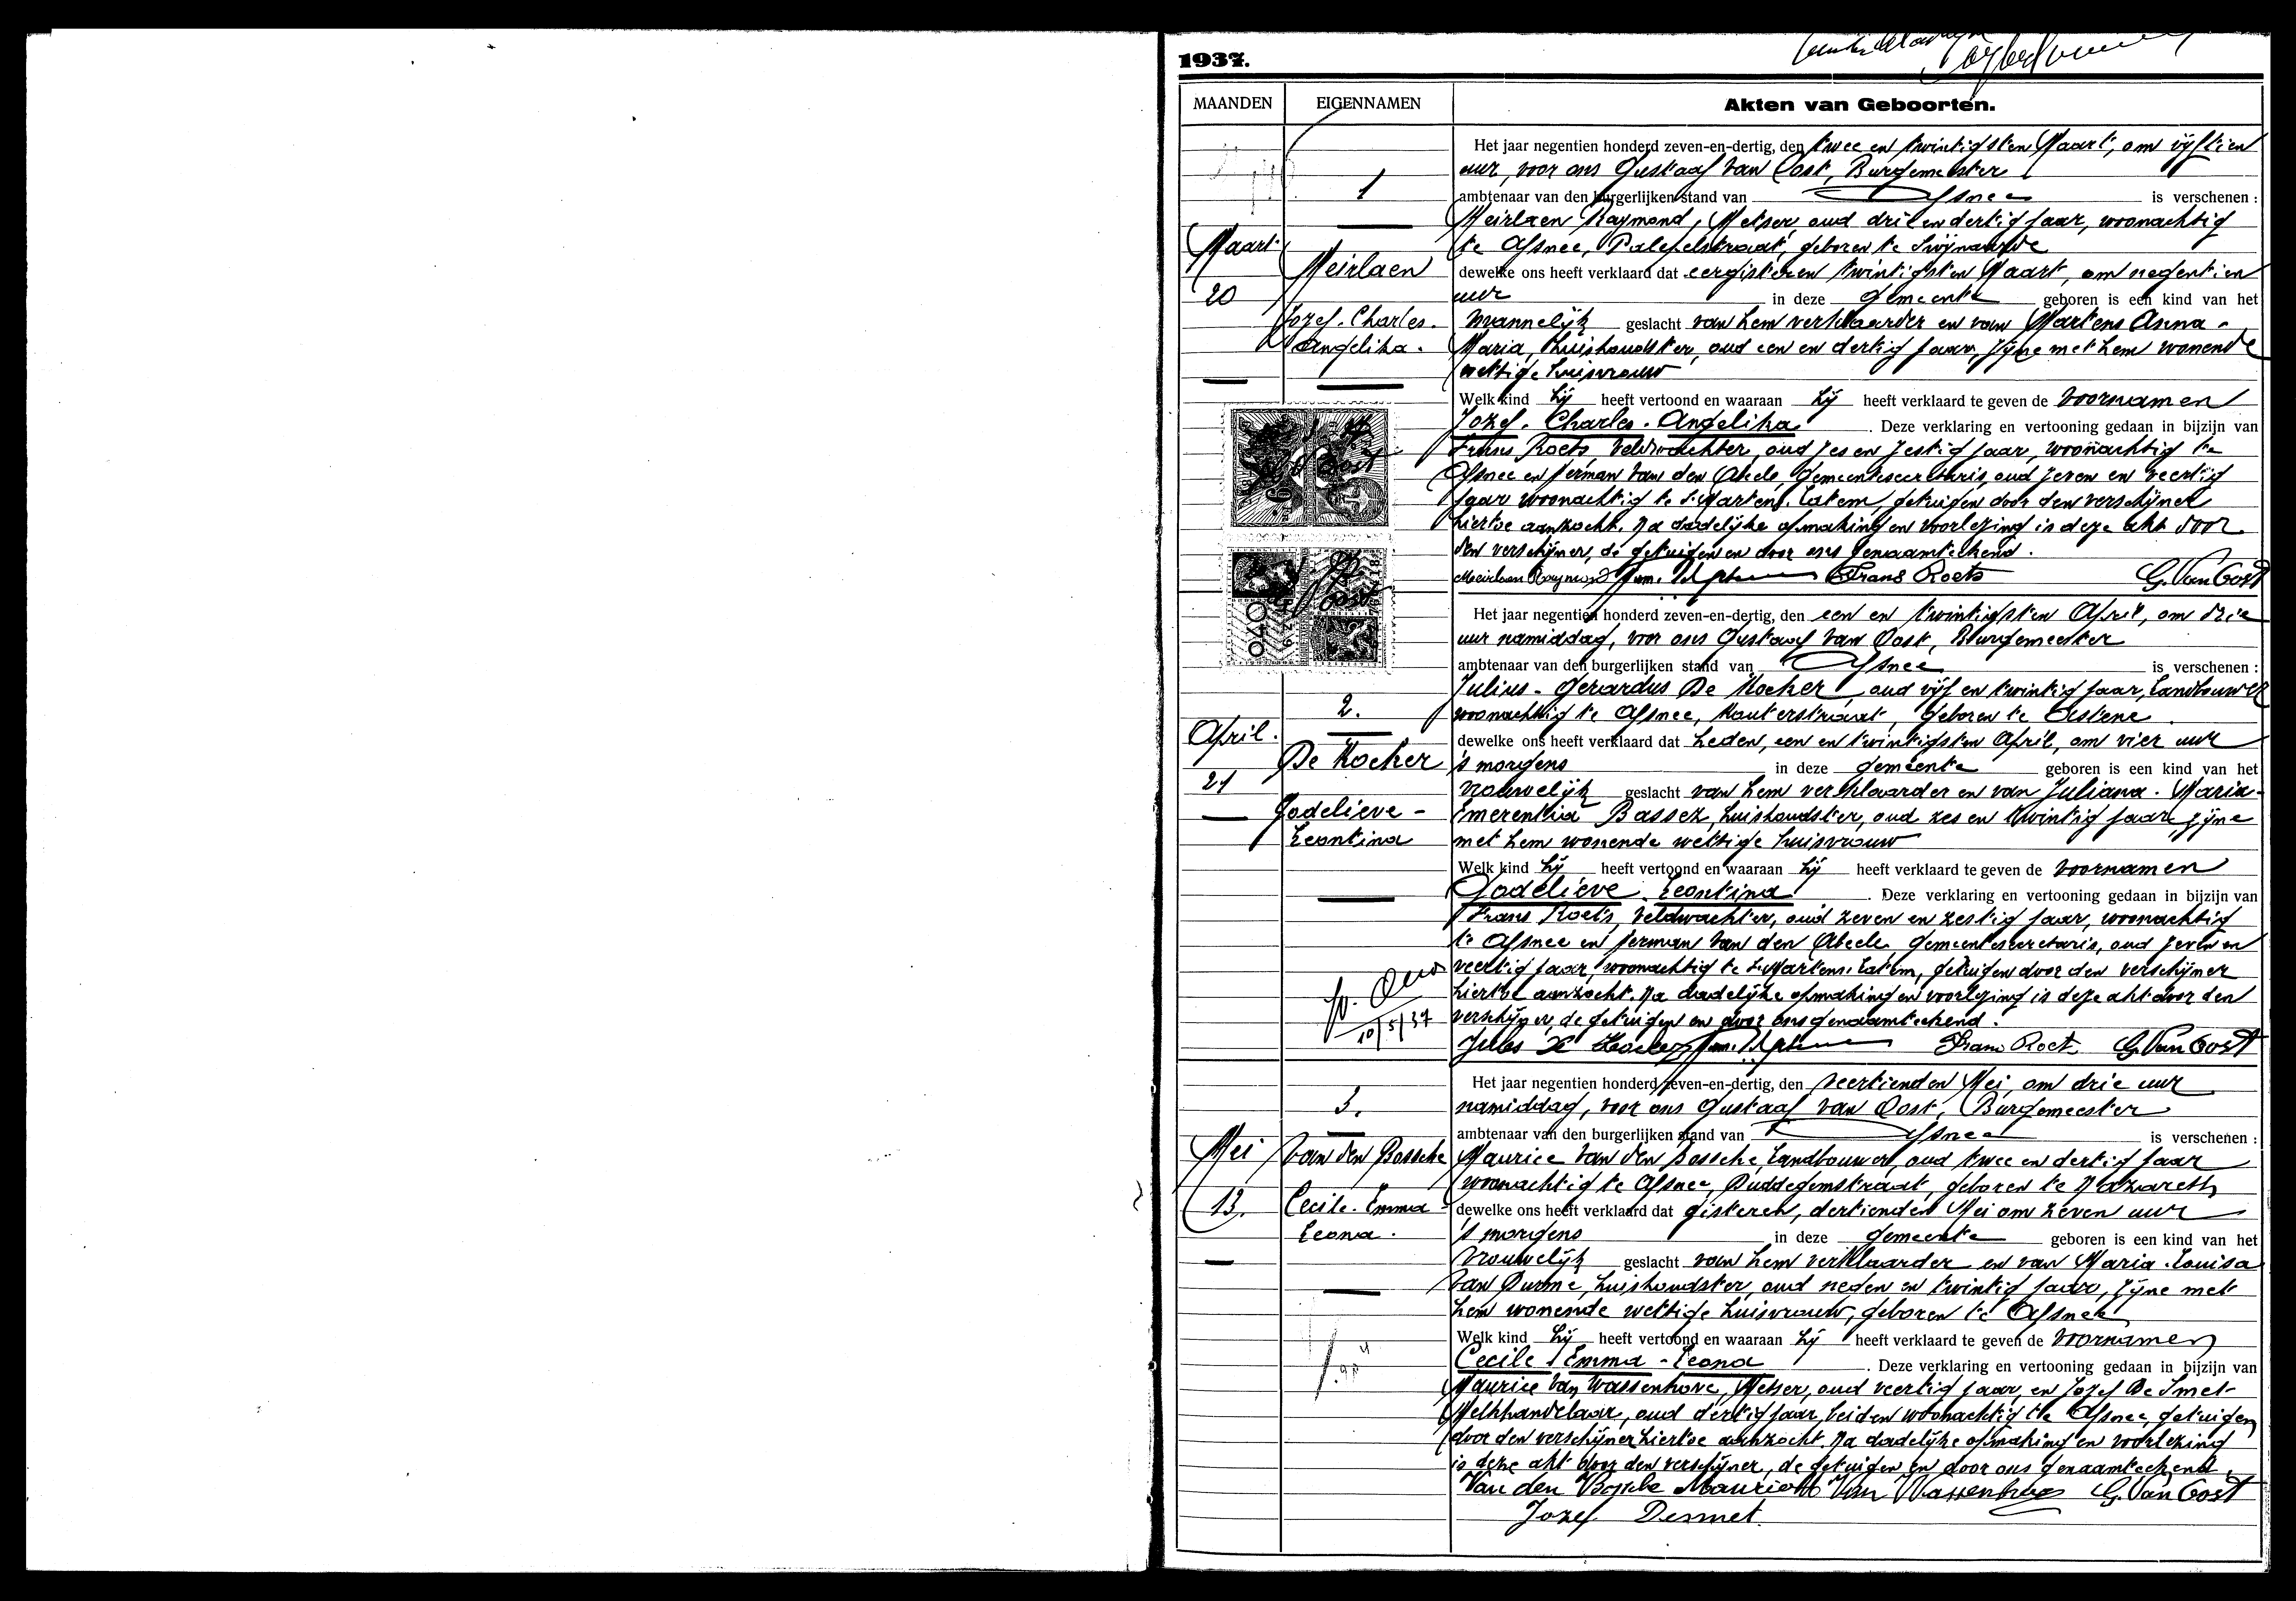 1937.
MAANDEN
EIGENNAMEN
Akten van Geboorten.
1
Maart
20
Meirlaen
Jozef. Charles.
Angelika.
Het jaar negentien honderd zeven-en-dertig, den twee en twintigsten Maart, om vijftien
uur, voor ons Gustaaf Van Oost, Burgemeester
ambtenaar van den burgerlijken stand van Afsnee is verschenen :
Meirlaen Raymond, Metser, oud drie en dertig jaar, woonachtig
te Afsnee, Palepelstraat, geboren te Swijnaarde
dewelke ons heeft verklaard dat eergisteren twintigsten Maart, om negentien
uur in deze gemeente geboren is een kind van het
mannelijk geslacht van hem verklaarder en van Martens Anna-
Maria, huishoudster, oud een en dertig jaar, zijne met hem wonende
wettige huisvrouw
Welk kind hij heeft vertoond en waaraan hij heeft verklaard te geven de voornamen
Jozef. Charles. Angelika. Deze verklaring en vertooning gedaan in bijzijn van
Frans Roets, Veldwachter, oud zes en zestig jaar, woonachtig te
Afsnee en Herman Van den Abeele, Gemeentesecretaris, oud zeven en veertig
jaar woonachtig te St Martens. Latem, getuigen door den verschijner
hiertoe aanzocht. Na dadelijke opmaking en voorlezing is deze akt door
den verschijner, de getuigen en door ons genaamteekend.
Meirlaen Raymond Frans Roets G. Van Oost
2.
April.
21
De Kocker
Godelieve -
Leontina
Het jaar negentien honderd zeven-en-dertig, den een en twintigsten April, om drie
uur namiddag, voor ons Gustaaf Van Oost, Burgemeester
ambtenaar van den burgerlijken stand van Afsnee is verschenen :
Julius - Gerardus De Kocker, oud vijf en twintig jaar, Landbouwer
woonachtig te Afsnee, Kouterstraat, geboren te Astene.
dewelke ons heeft verklaard dat heden, een en twintigsten April, om vier uur
's morgens in deze gemeente geboren is een kind van het
vrouwelijk geslacht van hem verklaarder en van Juliana. Maria-
Emerentia Bassez, huishoudster, oud zes en twintig jaar, zijne
met hem wonende wettige huisvrouw
Welk kind hij heeft vertoond en waaraan hij heeft verklaard te geven de voornamen
Godelieve. Leontina. Deze verklaring en vertooning gedaan in bijzijn van
Frans Roets, Veldwachter, oud zeven en zestig jaar, woonachtig
te Afsnee en Herman Van den Abeele Gemeentesecretaris, oud zeven en
veertig jaar, woonachtig te St Martens. Latem, getuigen door den verschijner
hiertoe aanzocht. Na dadelijke opmaking en voorlezing is deze akt door den
verschijner, de getuigen en door ons genaamteekend.
10/5/37
Jules De Kocker Frans Roets G. Van Oost
3.
Mei
13.
Van den Bossche
Cecile. Emma -
Leona.
Het jaar negentien honderd zeven-en-dertig, den veertienden Mei, om drie uur
namiddag, voor ons Gustaaf Van Oost, Burgemeester
ambtenaar van den burgerlijken stand van Afsnee is verschenen :
Maurice Van den Bossche, Landbouwer, oud twee en dertig jaar
woonachtig te Afsnee, Duddegemstraat, geboren te Nazareth
dewelke ons heeft verklaard dat gisteren, dertienden Mei om zeven uur
's morgens in deze gemeente geboren is een kind van het
vrouwelijk geslacht van hem verklaarder en van Maria. Louisa
Van Durme, huishoudster, oud negen en twintig jaar, zijne met
hem wonende wettige huisvrouw, geboren te Afsnee
Welk kind hij heeft vertoond en waaraan hij heeft verklaard te geven de voornamen
Cecile - Emma - Leona. Deze verklaring en vertooning gedaan in bijzijn van
Maurice Van Wassenhove, Metser, oud veertig jaar, en Jozef De Smet
Melkhandelaar, oud dertig jaar, beiden woonachtig te Afsnee, getuigen
door den verschijner hiertoe aanzocht. Na dadelijke opmaking en voorlezing
is deze akt door den verschijner, de getuigen en door ons genaamteekend.
Van den Bossche Maurice M Van Wassenhove G. Van Oost
Jozef Desmet